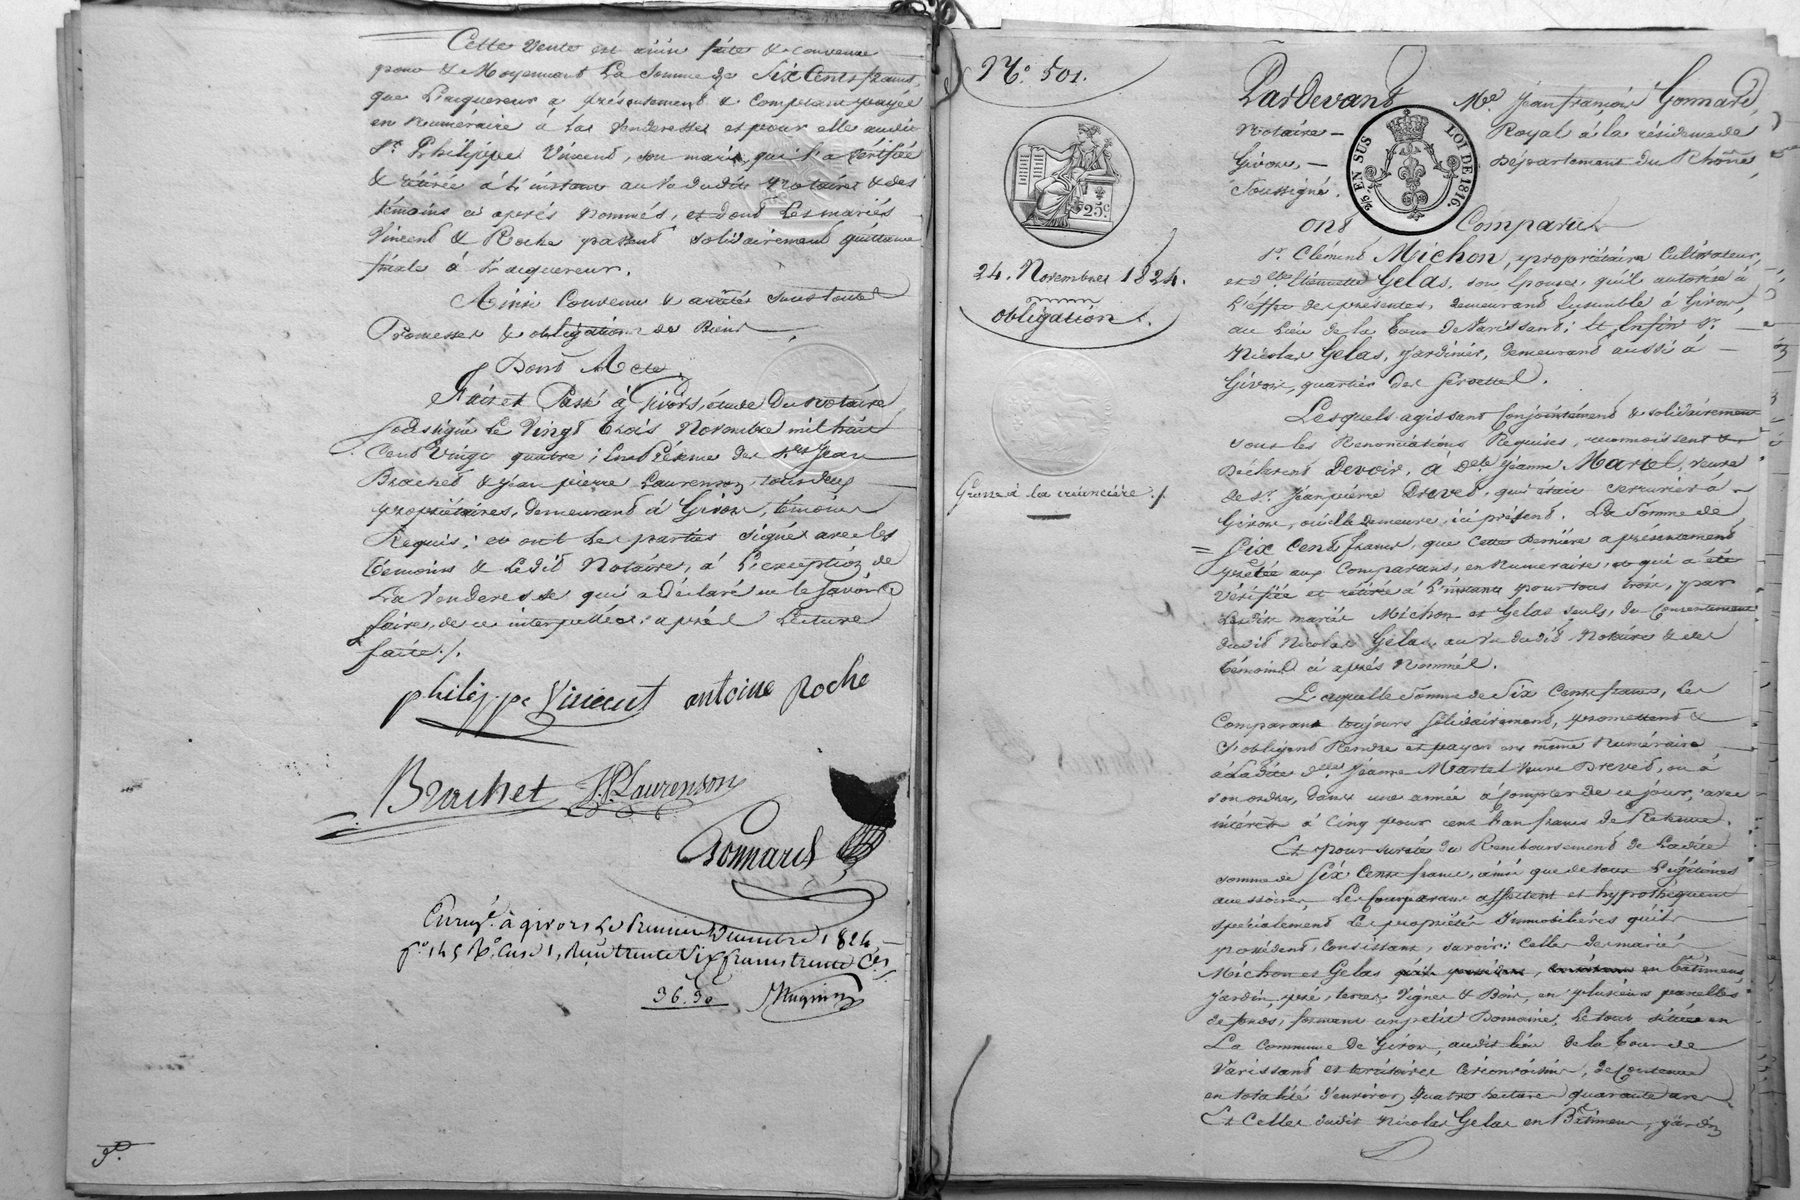 Cette Vente est ainsi faite & convenue
pour & Moyennant La Somme de Six Cents francs,
que L'acquereur a présentement & comptant payée
en numéraire à la Venderesse et pour elle audit
Sr. Philippe Vincent, son mari, qui l'a vérifiée
& retirée à l'instant au Vu dudit Notaire & des
témoins ci après nommés, et dont Les mariés
Vincent & Roche passent solidairement quittance
finale à L'acquereur.
Ainsi Convenu & arrêté sous toutes
Promesses & obligations de Biens,
Dont Acte,
Fait et Passé à Givors, étude Du Notaire
soussigné Le Vingt trois Novembre mil huit
Cent Vingt quatre; En Présence des Srs. Jean
Brachet & Jean pierre Laurenson, tous deux
propriétaires, demeurant à Givors, témoins
Requis; et ont Les parties signé avec les
témoins & Ledit Notaire, à L'exception de
La Venderesse qui a Déclaré ne le savoir
faire, de ce interpellée; après Lecture
faite ./.
philippe Vincent antoine Roche
Brachet J.P. Laurenson
Gonnard
Enregé. à givors Le Premier Décembre 1824,
fo. 145 Ro. Case 1, Reçu trente six francs trente Ces.
36.30
No. 501.
25c
24. Novembre 1824.
obligation.
Grosse à la créancière ./.
25 EN SUS LOI DE 1816.
Pardevant Me. Jean françois Gonnard,
Notaire Royal à la résidence de
Givors, Département du Rhône,
Soussigné.
ont Comparu
Sr. Clément Michon, propriétaire Cultivateur,
et Dlle. Gelas, son Epouse, qu'il autorise à
L'effet des présentes, demeurant Ensemble à Givors,
au Lieu de la Tour de Varissant; Et Enfin Sr.
Nicolas Gelas, jardinier, demeurant aussi à
Givors, quartier des
Lesquels agissant Conjointement & solidairement
sous les Renonciations Requises, reconnaissent &
Déclarent Devoir, à Delle Jeanne Martel, veuve
de Sr. Jean pierre Drevet, qui était serrurier à
Givors, où elle demeure, ici présent. La Somme de
Six Cent francs, que Cette Dernière a présentement
prêtée aux Comparans, en Numéraire, & qui a été
Vérifiée et retirée à L'instant pour tous trois, par
Lesdits mariés Michon et Gelas seuls, du Consentement
dudit Nicolas Gelas, au Vu dudit Notaire & des
témoins ci après Nommés.
Laquelle Somme de Six Cents francs, Les
Comparans toujours solidairement, promettent &
s'obligent Rendre et payer en même Numéraire
à Ladite Delle Jeanne Martel Veuve Drevet, ou à
son ordre, dans une année à compter de ce jour, avec
intérêts à Cinq pour cent sans frais de Retenue.
Et pour sureté du Remboursement de Ladite
somme de Six Cents francs, ainsi que de tous Légitimes
accessoires, Les Comparans affectent et hypothèquent
spécialement Les propriétés Immobilières qu'ils
possèdent, Consistant, savoir: Celles des mariés
Michon et Gelas en bâtimens,
jardin, pré, terres, Vignes & Bois, en plusieurs parcelles
de fonds, formant un petit Domaine, Le tout situé en
La Commune de Givors, audit lieu de la Tour de
Varissant et territoires Circonvoisins, de Contenue
en totalité d'environ quatre hectares quarante ares,
Et Celles dudit Nicolas Gelas en Bâtimens, jardin